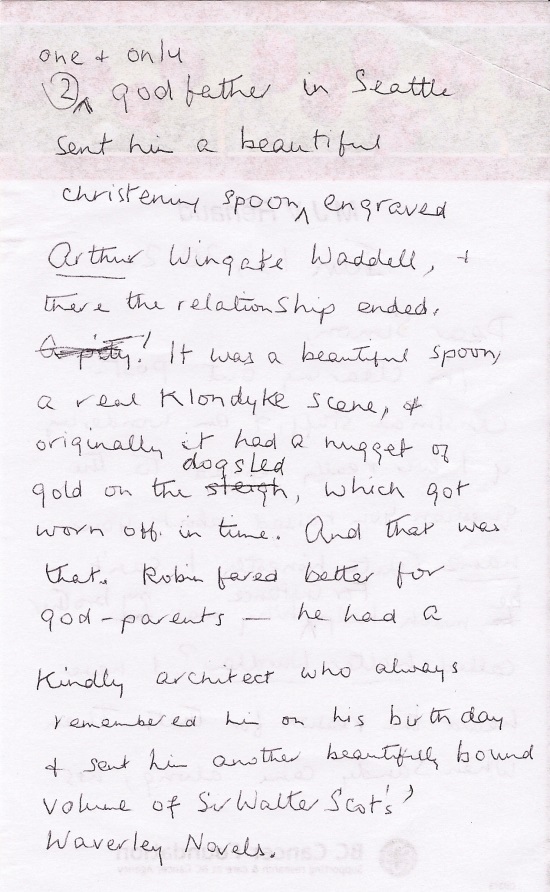 one + only
② ^ godfather in Seattle
sent him a beautiful
christening spoon, engraved
Arthur Wingate Waddell, +
there the relationship ended.
A pity! It was a beautiful spoon,
a real Klondyke scene, &
originally it had a nugget of
dogsled
gold on the sleigh, which got
worn off in time. And that was
that. Robin fared better for
god-parents — he had a
kindly architect who always
remembered him on his birthday
& sent him another beautifully bound
volume of Sir Walter Scot's'
Waverley Novels.